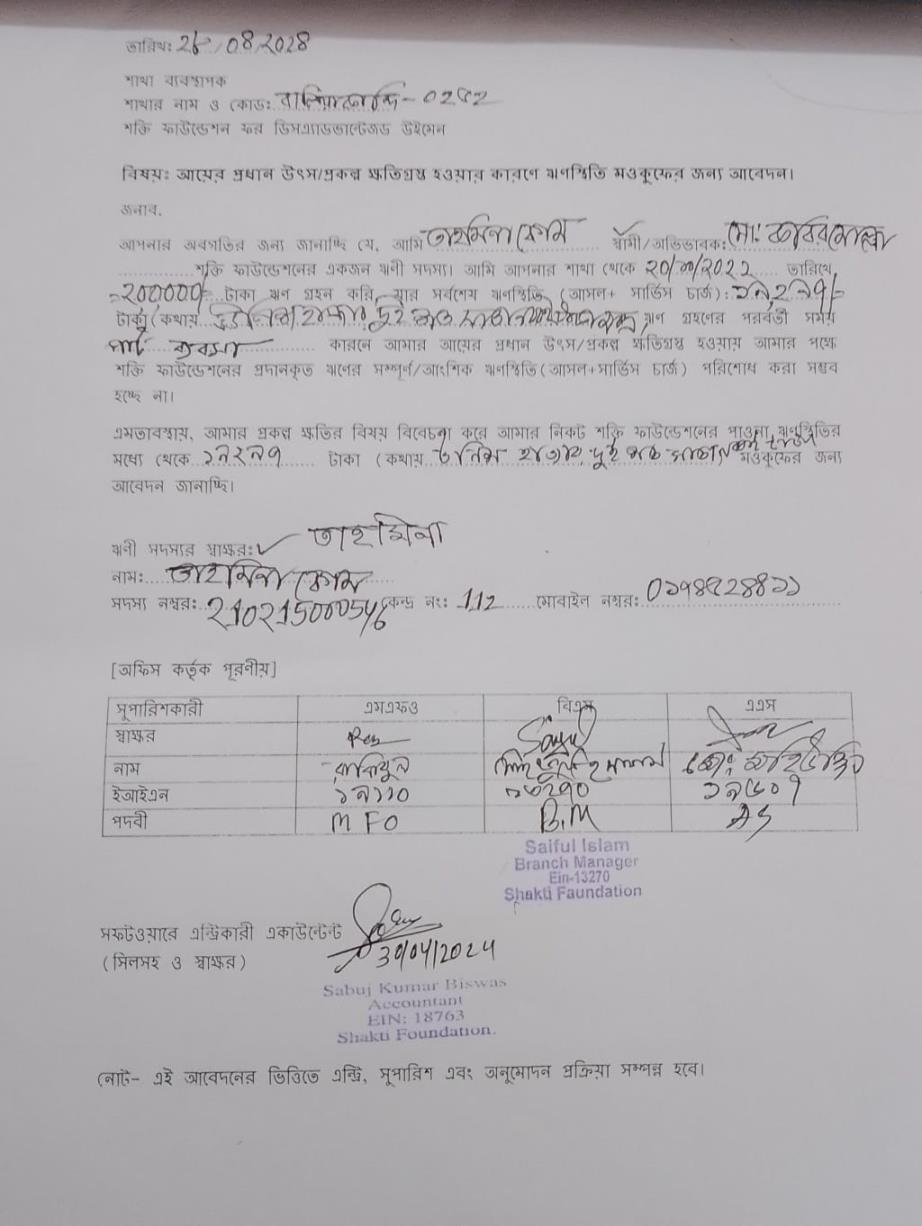 তারিখঃ 2৮/08/2028
শাখা ব্যবস্থাপক
শাখার নাম ও কোডঃ বালিয়াকান্দি - 0২৫২
শক্তি ফাউন্ডেশন ফর ডিসএ্যাডভান্টেজড উইমেন
বিষয়ঃ আয়ের প্রধান উৎস/প্রকল্প ক্ষতিগ্রস্ত হওয়ার কারণে ঋণস্থিতি মওকুফের জন্য আবেদন।
জনাব,
আপনার অবগতির জন্য জানাচ্ছি যে, আমি তাহমিনা বেগম স্বামী/অভিভাবক: মো:
শক্তি ফাউন্ডেশনের একজন ঋণী সদস্য। আমি আপনার শাখা থেকে ২০/ /২০২২ তারিখে
২০০০০০/- টাকা ঋণ গ্রহন করি, যার সর্বশেষ ঋণস্থিতি (আসল+ সার্ভিস চার্জ): ১৯,২৯৭/-
টাকা (কথায় ঊনিশ হাজার দুই শত সাতানব্বই টাকা ঋণ গ্রহণের পরবর্তী সময়
পাট ব্যবসা কারনে আমার আয়ের প্রধান উৎস/প্রকল্প ক্ষতিগ্রস্থ হওয়ায় আমার পক্ষে
শক্তি ফাউন্ডেশনের প্রদানকৃত ঋণের সম্পূর্ণ/আংশিক ঋণস্থিতি (আসল+সার্ভিস চার্জ) পরিশোধ করা সম্ভব
হচ্ছে না।
এমতাবস্থায়, আমার প্রকল্প ক্ষতির বিষয় বিবেচনা করে আমার নিকট শক্তি ফাউন্ডেশনের পাওনা ঋণস্থিতির
মধ্যে থেকে ১৯২৯৭ টাকা (কথায় ঊনিশ হাজার দুই শত সাতানব্বই টাকা) মওকুফের জন্য
আবেদন জানাচ্ছি।
ঋণী সদস্যর স্বাক্ষর: তাহমিনা
নাম: তাহমিনা বেগম
সদস্য নম্বর: 21021500054৬ কেন্দ্র নং: 112 মোবাইল নম্বর: 0১৭৪৫২৪৪১১
[অফিস কর্তৃক পূরণীয়]
সুপারিশকারী এমএফও বিএম এএস
স্বাক্ষর
নাম রাকিবুল মোঃ সাইফুল ইসলাম মোঃ
ইআইএন ১৯১১০ ১৩২৭০ ১৯৬০৭
পদবী MFO B.M AS
Saiful Islam
Branch Manager
Ein-13270
Shakti Faundation
সফটওয়ারে এন্ট্রিকারী একাউন্টেন্ট
(সিলসহ ও স্বাক্ষর) 30/04/2024
Sabuj Kumar Biswas
Accountant
EIN: 18763
Shakti Foundation.
নোট- এই আবেদনের ভিত্তিতে এন্ট্রি, সুপারিশ এবং অনুমোদন প্রক্রিয়া সম্পন্ন হবে।